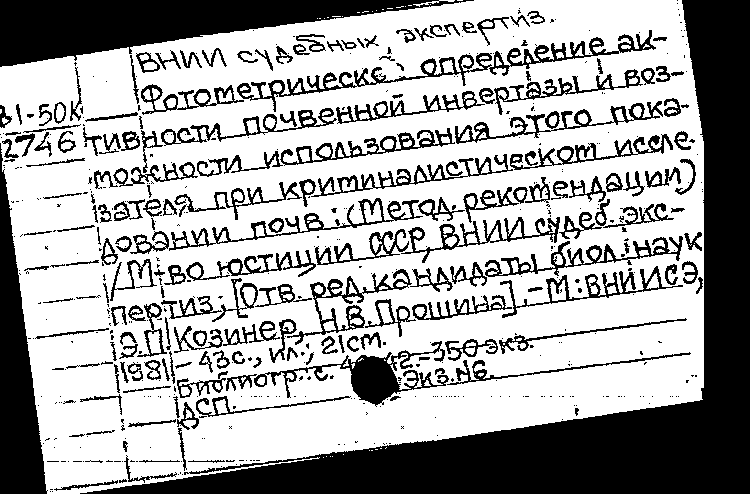 ВНИИ судебных экспертиз.
Фотометрическое определение ак-
81-50К
2746
тивности почвенной инвертазы и воз-
можности использования этого пока-
зателя при криминалистическом иссле-
довании почв: (Метод. рекомендации)
/М-во юстиции СССР, ВНИИ судеб. экс-
пертиз; [Отв. ред. кандидаты биол. наук
Э.П. Козинер, Н.В. Прошина]. - М: ВНИИСЭ,
1981 - 43с., ил.; 21см.
Библиогр.: с. 42. - 350 экз.
ДСП. Экз.N6.